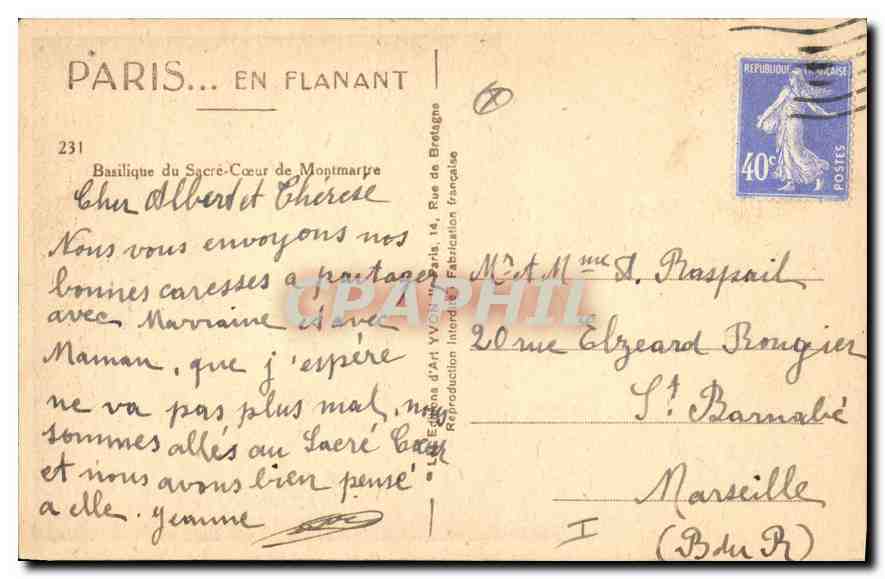 PARIS... EN FLANANT
231
Basilique du Sacré-Cœur de Montmartre
Cher Albert et Thérese
Nous vous envoyons nos
bonnes caresses a partager
avec Marraine et avec
Maman, que j'espère
ne va pas plus mal, nous
sommes allés au Sacré Cœur
et nous avons bien pensé
a elle. Jeanne
Les Editions d'Art YVON" Paris, 14, Rue de Bretagne
Reproduction Interdite Fabrication française
REPUBLIQUE FRANÇAISE
40c
POSTES
Mr et Mme A. Raspail
20 rue Elzeard Rougier
St Barnabé
Marseille
(B du R)
I
CPAPHIL